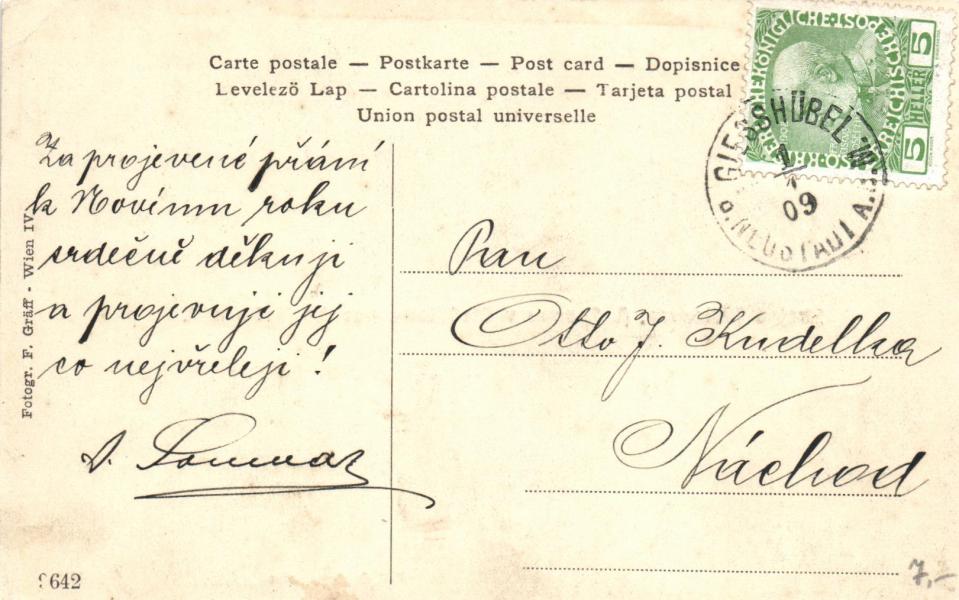 Carte postale — Postkarte — Post card — Dopisnice
Levelezö Lap — Cartolina postale — Tarjeta postal
Union postal universelle
KAISERLICHE KÖNIGLICHE ÖSTERREICHISCHE POST
5 HELLER 5
GIESSHÜBEL
1/1
09
NEUSTADT A.
Za projevené přání
k Novému roku
srdečně děkuji
a projevuji jej
co nejvřeleji!
Pan
Otto J. Kudelka
Náchod
Fotogr. F. Gräff - Wien IV
9642
7,-